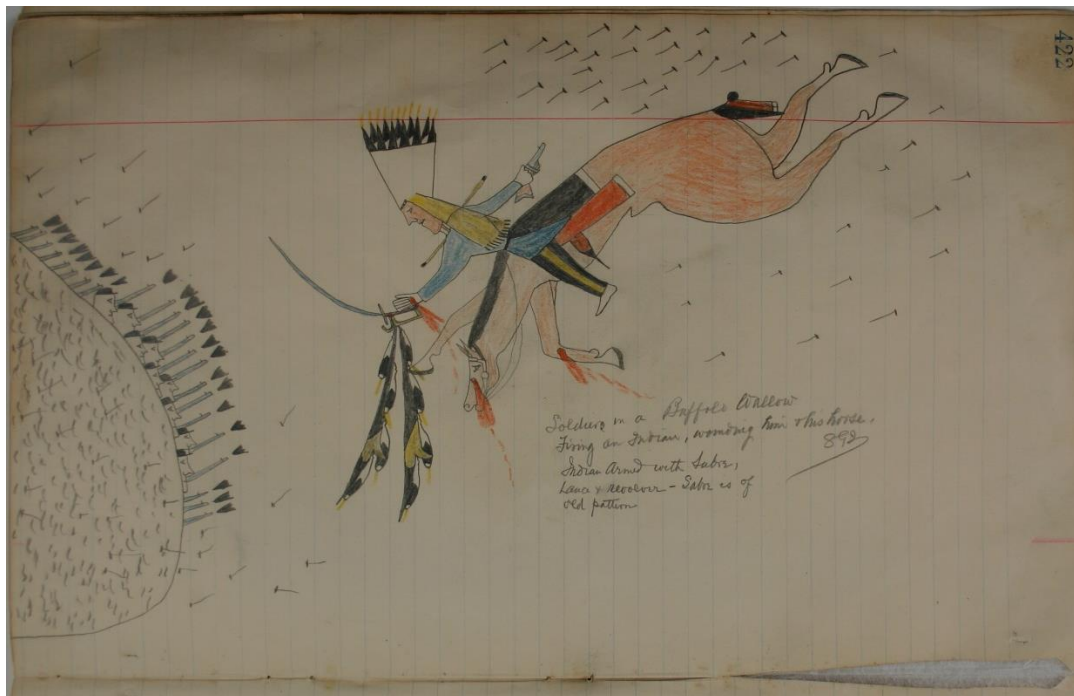 422
Soldiers in a Buffalo Wallow
Firing on Indian, wounding him & his horse.
892
Indian Armed with Sabre,
Lance & revolver - Sabre is of
old pattern